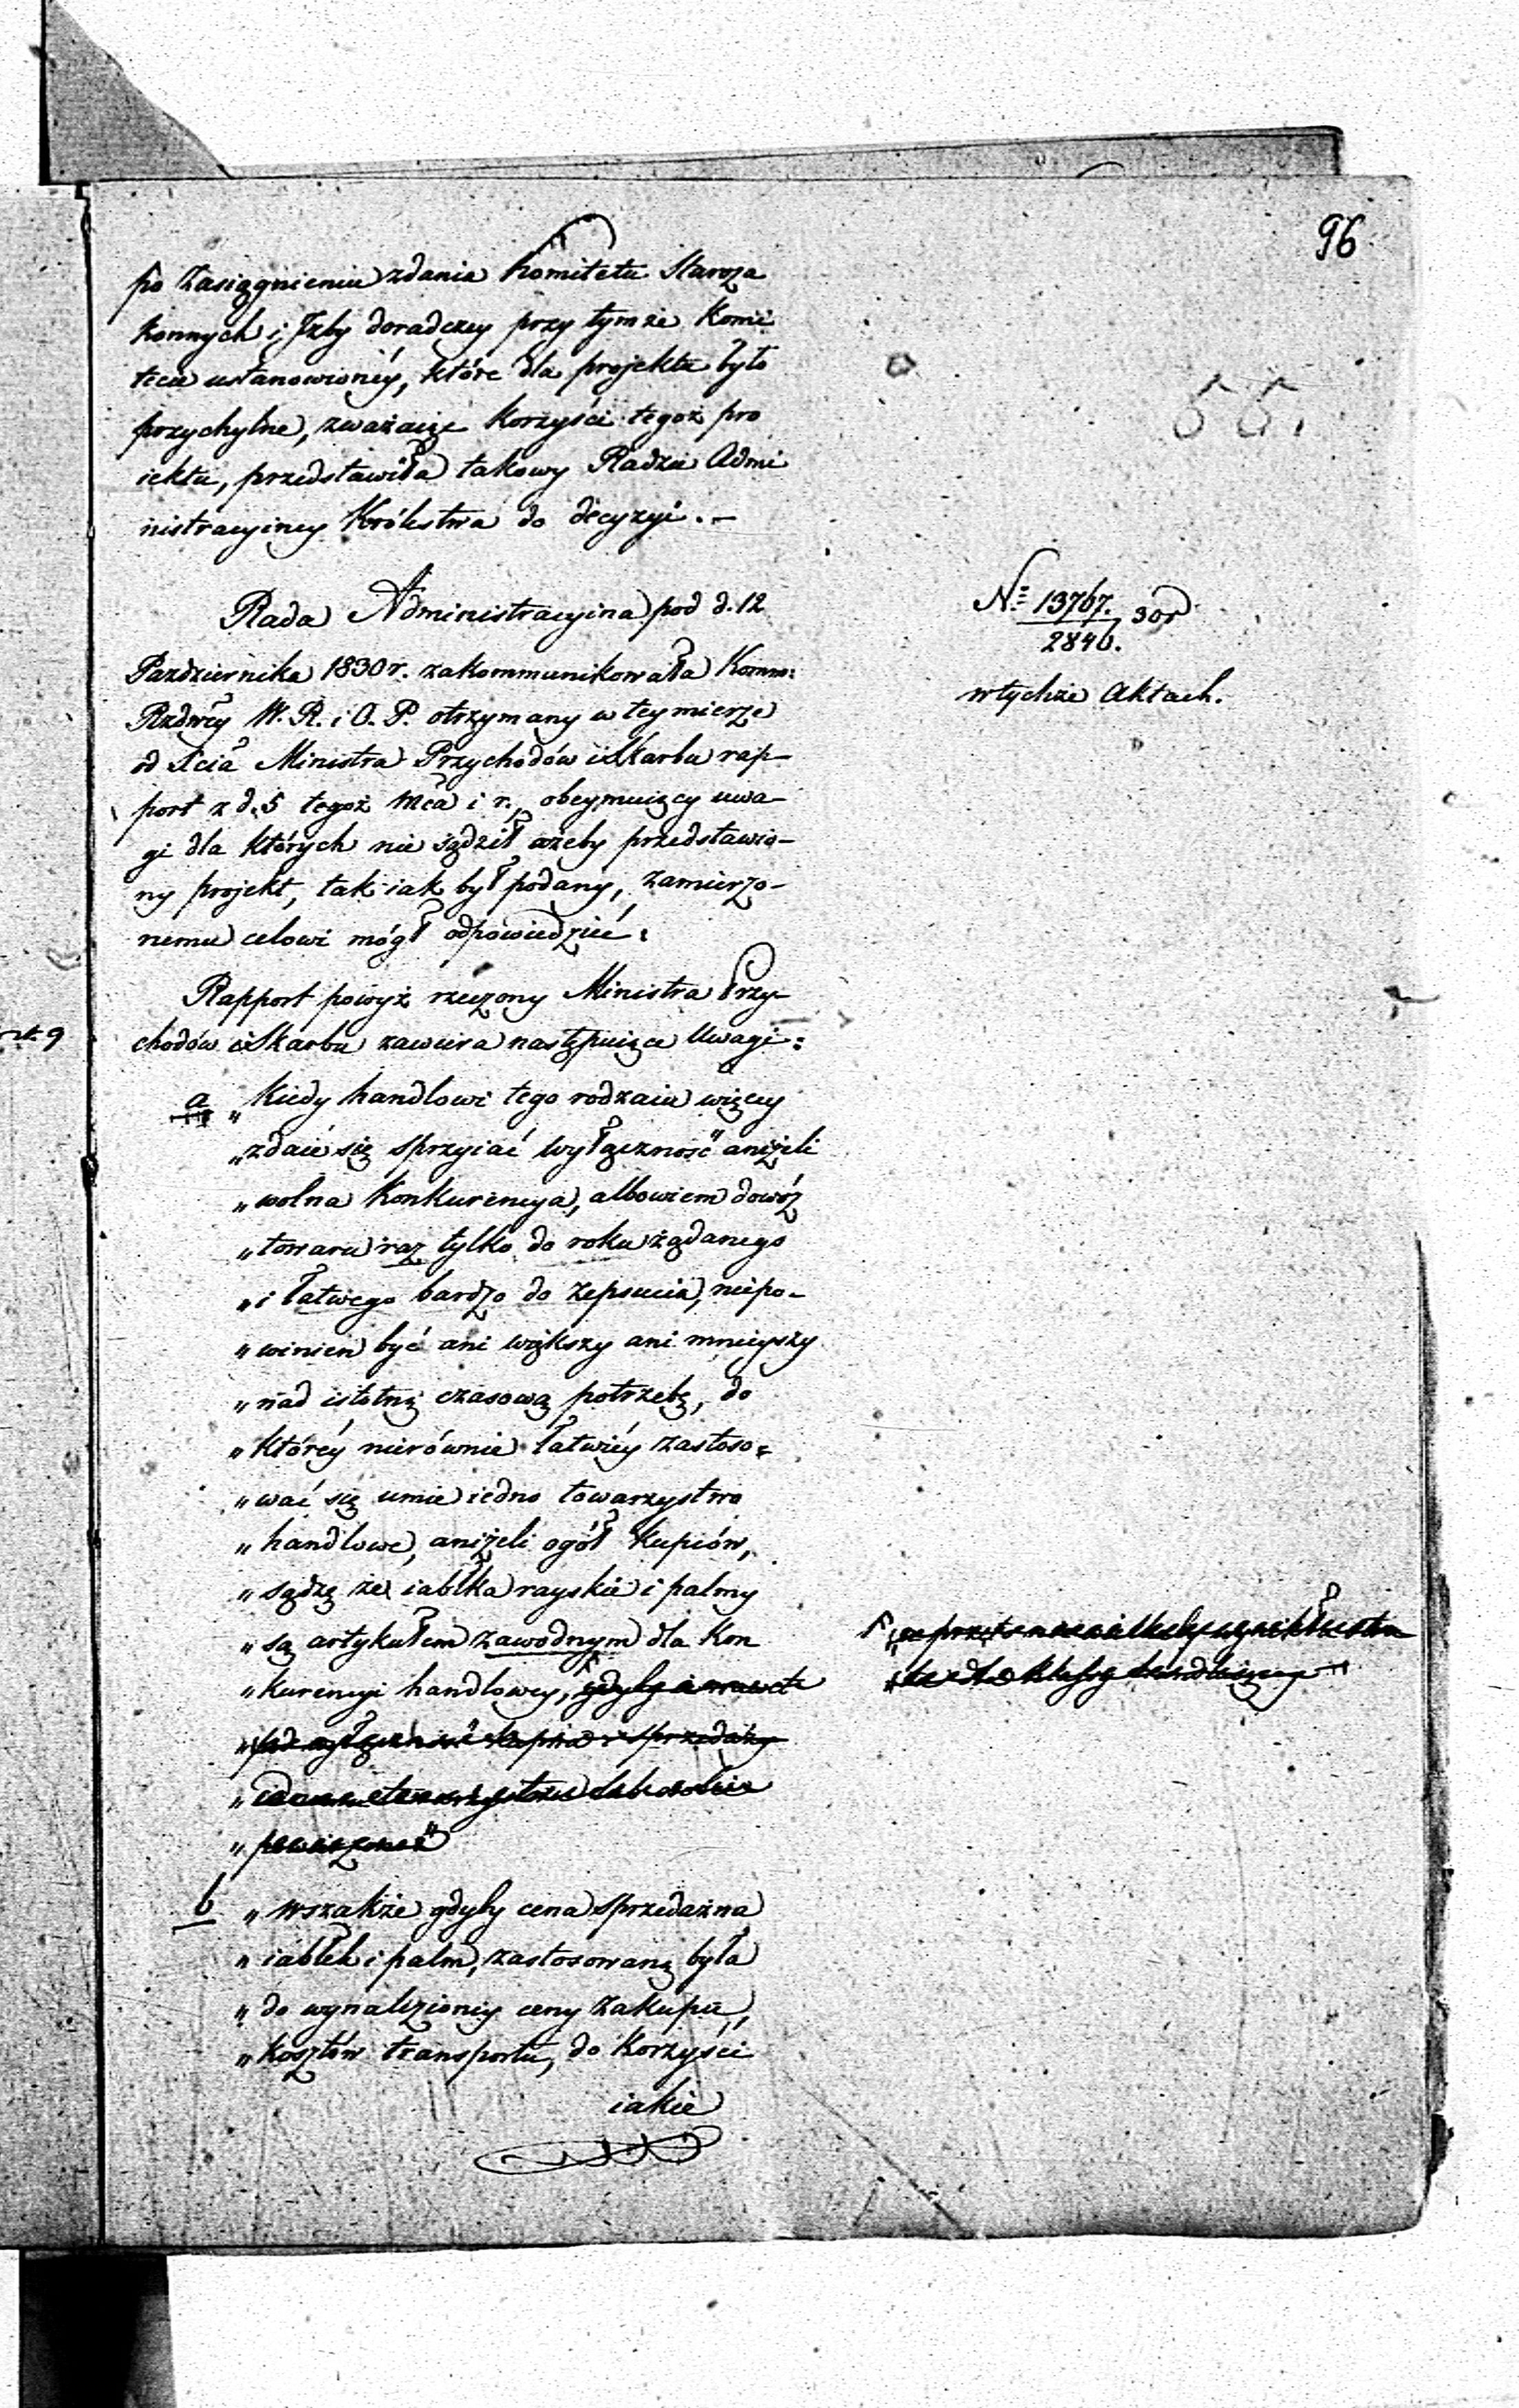 96
55.
po zasiągnieniu zdania Komitetu Staroza
konnych i Izby doradczey przy tymże Komi
tecie ustanowionéy, które dla projektu było
przychylne, zważaiąc korzyści tegoż pro
iektu, przedstawiła takowy Radzie Admi
nistracyiney Królestwa do decyzyi. –
Rada Administracyina pod d. 12
Pazdziernika 1830 r. zakommunikowała Kommi:
Rządwéy W. R. i O. P. otrzymany w tey mierze
od Xcia Ministra Przychodów i Skarbu rap-
port z d. 5 tegoż Mca i r., obeymuiący uwa-
gi dla których nie sądził ażeby przedstawio-
ny projekt, tak iak był podany, zamierzo-
nemu celowi mógł odpowiedzieć:
No 13767. 30r
2840.
w tychże Aktach.
Rapport powyż rzeczony Ministra Przy-
chodów i Skarbu zawiera następuiące Uwagi:
a „Kiedy handlowi tego rodzaiu więcey
„zdaie się sprzyiać wyłączność aniżeli
„wolna konkurencya, albowiem dowóz
„towaru raz tylko do roku żądanego
„i łatwego bardzo do zepsucia, niepo-
„winien być ani większy ani mnieyszy
„nad istotną czasową potrzebę, do
„któréy nierównie łatwiéy zastoso=
„wać się umie iedno towarzystwo
„handlowe, aniżeli ogół kupców,
„sądzę że iabłka rayskie i palmy
„są artykułem zawodnym dla kon
„kurencyi handlowey, gdyby a nawet
„wyłączność kupna i sprzedaży
b „wszakże gdyby cena sprzedażna
„iabłek i palm, zastosowaną była
„do wynalezioney ceny zakupu,
„kosztów transportu, do korzyści
iakie